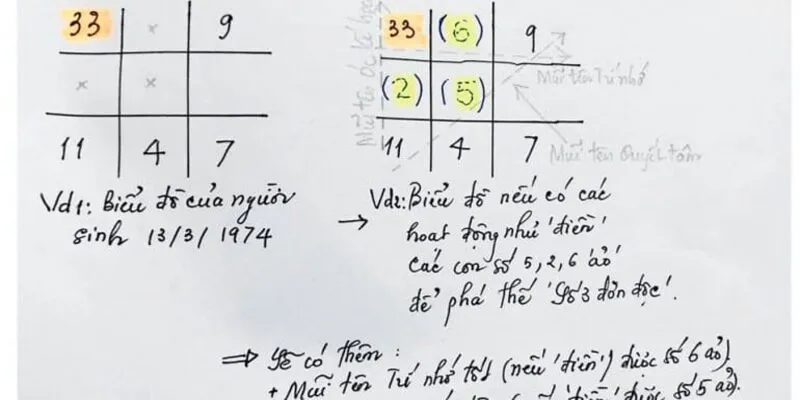 33 × 9
× ×
11 4 7
Vd1: Biểu đồ của người
sinh 13/3/1974
33 (6) 9
(2) (5)
11 4 7
Mũi tên Trí nhớ
Mũi tên Quyết tâm
Mũi tên Óc kế hoạ
→ Vd2: Biểu đồ nếu có các
hoạt động như 'điền'
các con số 5, 2, 6 'ảo'
để phá thế 'số 3 đơn độc'.
⇒ Sẽ có thêm:
+ Mũi tên Trí nhớ tốt (nếu 'điền') được số 6 ảo)
'điền' được số 5 ảo).